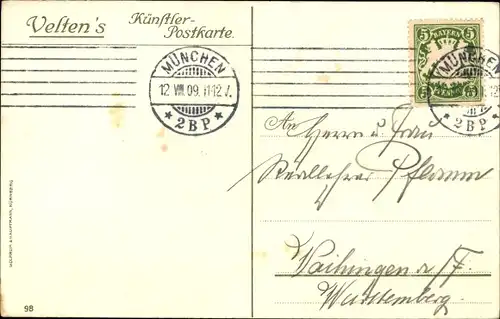 Velten's
Künstler-
Postkarte.
MÜNCHEN
12 VIII.09. 11-12 V.
* 2BP *
5 BAYERN 5
5 5
MÜNCHEN
* 2BP *
An Herrn u. Frau
Reallehrer Pflamm
Vaihingen a/F.
Württemberg.
98